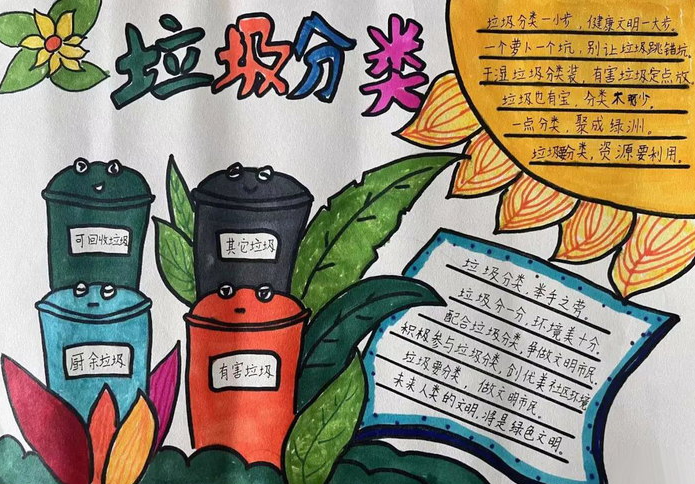 垃圾分类
垃圾分类一小步，健康文明一大步。
一个萝卜一个坑，别让垃圾跳错坑。
干湿垃圾分类装，有害垃圾定点放
垃圾也有宝，分类不可少。
一点分类，聚成绿洲。
垃圾要分类，资源要利用。
可回收垃圾
其它垃圾
厨余垃圾
有害垃圾
垃圾分类，举手之劳。
垃圾分一分，环境美十分。
配合垃圾分类，争做文明市民。
积极参与垃圾分类，创优美社区环境
垃圾要分类，做文明市民。
未来人类的文明，将是绿色文明。